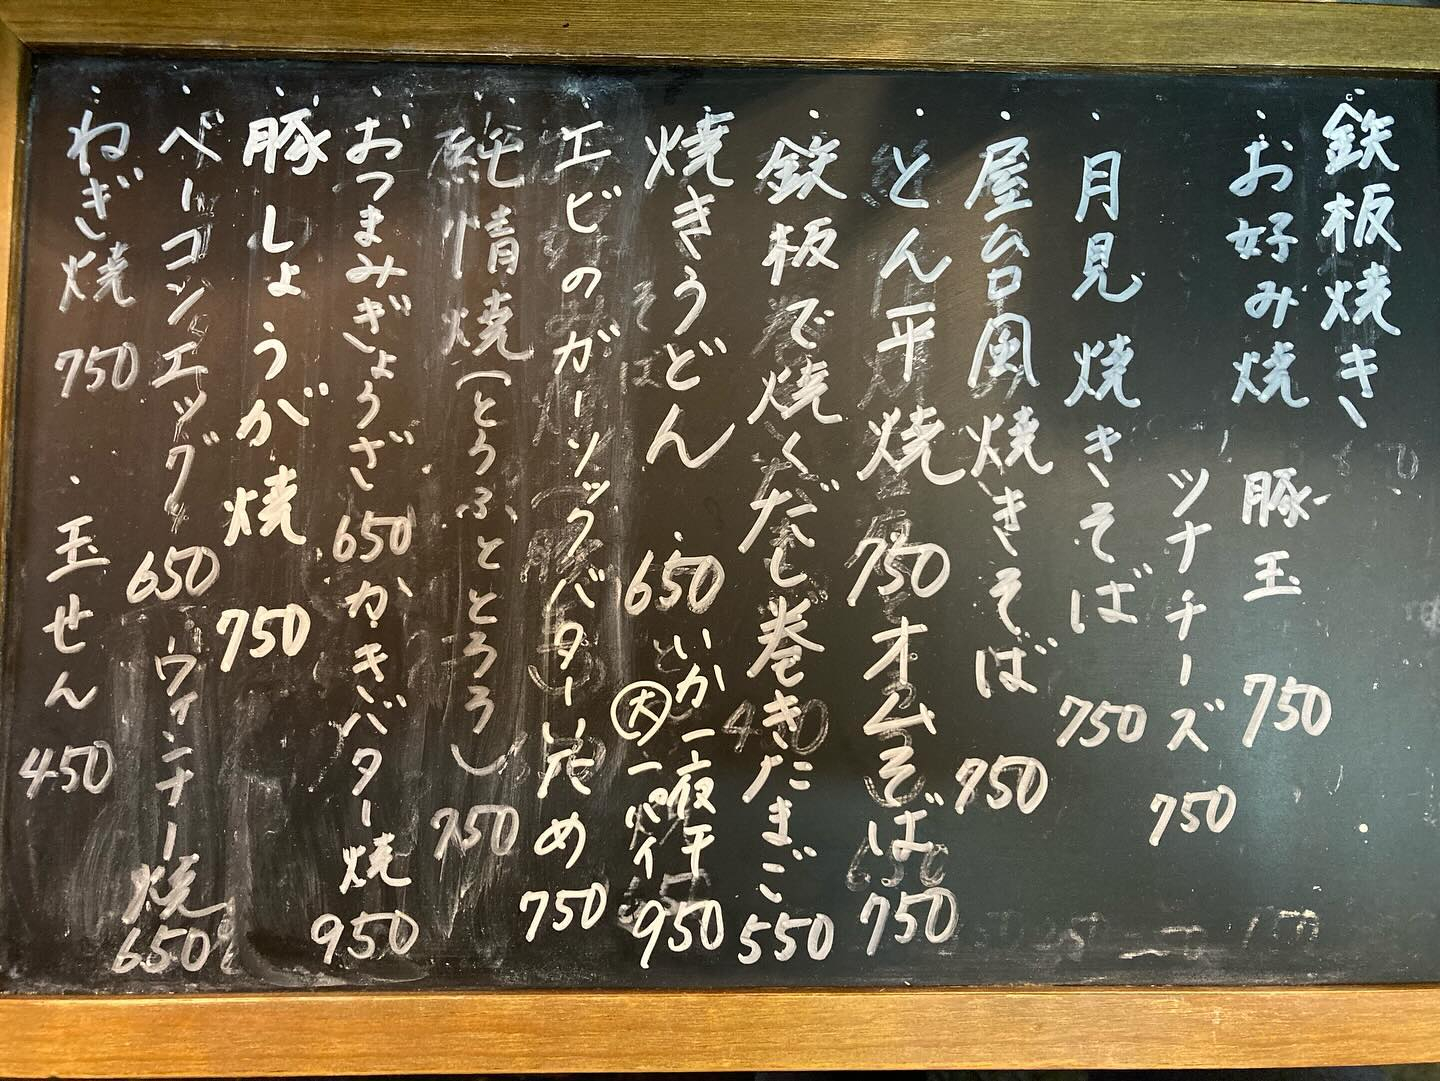 鉄板焼き
・お好み焼 豚玉 750
ツナチーズ 750
・月見焼きそば 750
・屋台風焼きそば 750
・とん平焼 750 オムそば 750
・鉄板で焼くだし巻きたまご 550
・焼きうどん 650 ・いか一夜干 大一パイ 950
・エビのガーリックバターいため 750
・純情焼(とうふととろろ) 750
・おつまみぎょうざ 650 かきバター焼 950
・豚しょうが焼 750
・ベーコンエッグ 650 ・ウィンナー焼 650
・ねぎ焼 750 ・玉せん 450